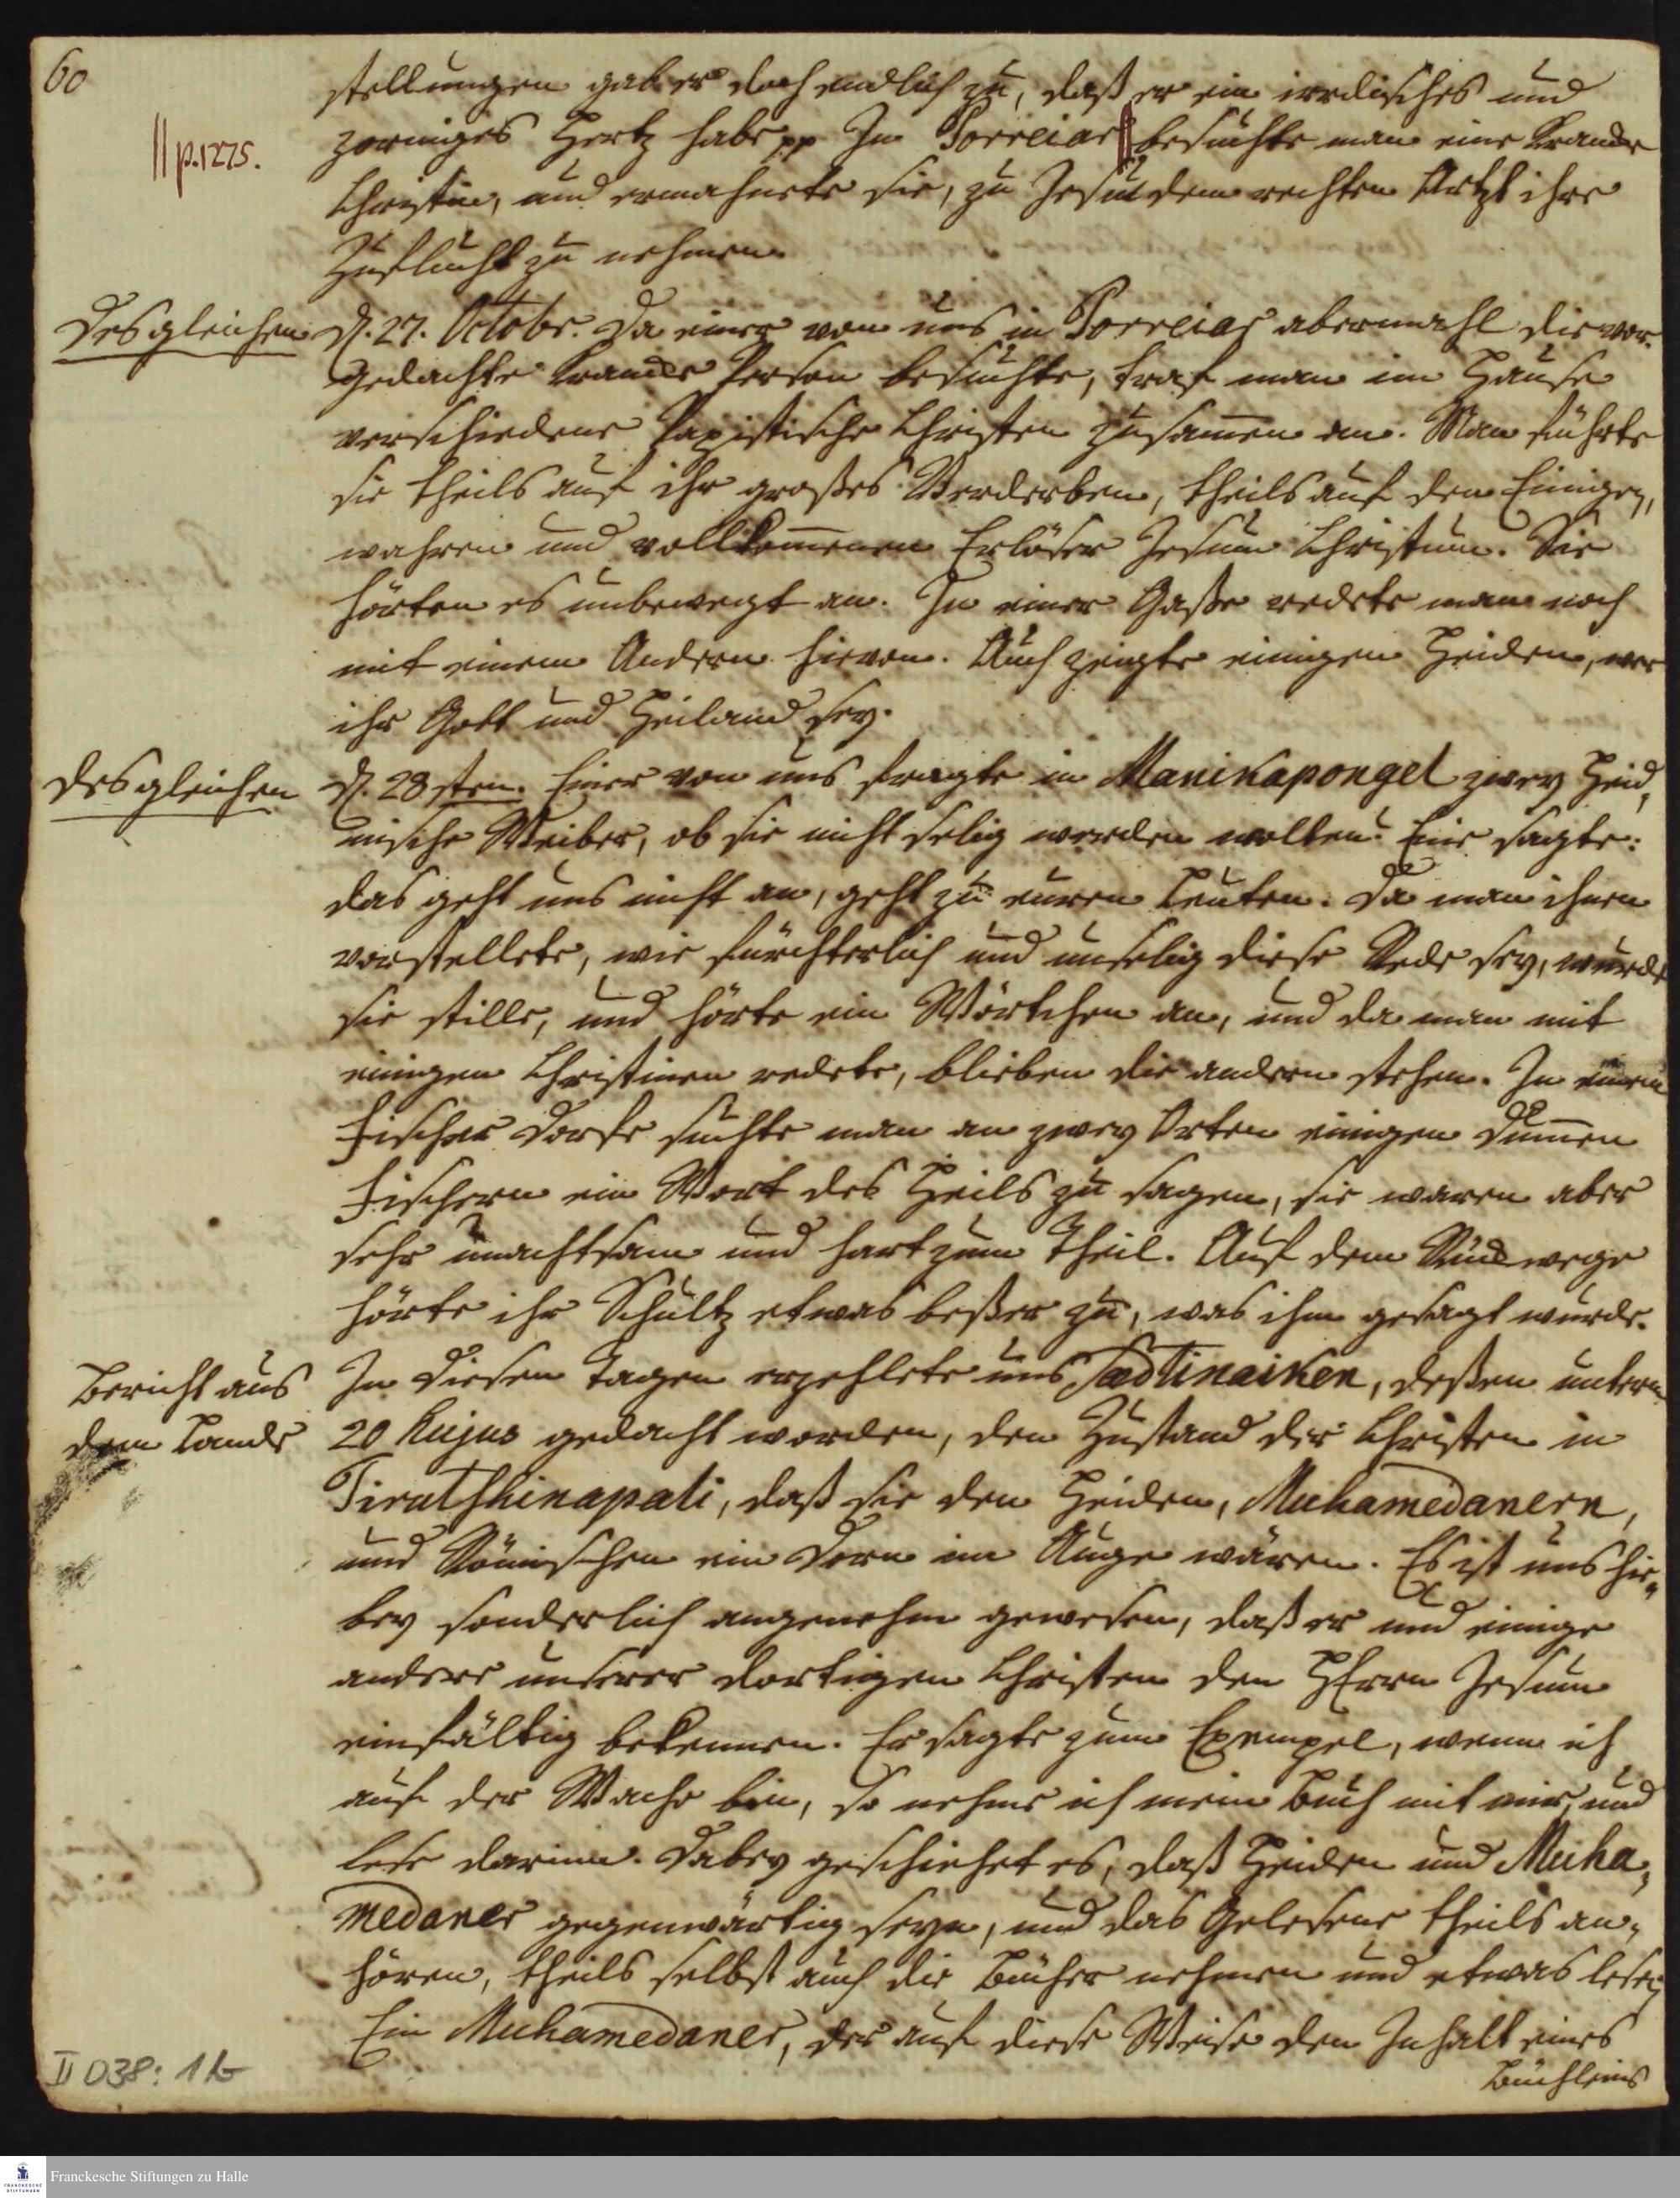 60
stellungen gab er doch endlich zu, daß er ein irrdisches und
zorniges Hertz habe pp In Porreiar || besuchte man eine Krancke
|| p. 1275.
Christin, und ermahnete sie, zu Jesu dem rechten Artzt ihre
Zuflucht zu nehmen.
Desgleichen
d. 27. Octobr. Da einer von uns in Porreiar abermahl die vor-
gedachte Krancke Person besuchte, traf man im Hause
verschiedene Papistische Christen zusamen an. Man führte
sie theils auf ihr großes Verderben, theils auf den Einigen,
wahren und vollkomenen Erlöser Jesum Christum. Sie
hörten es unbewegt an. In einer Gaße redete man noch
mit einem Andern hievon. Auch zeigte einigen Heiden, wer
ihr Gott und Heiland sey.
Desgleichen
d. 28 sten. Einer von uns fragte in Manikapongel zwey Heid,
nische Weiber, ob sie nicht selig werden wolten? Eine sagte:
das geht uns nicht an, geht zu euren Leuten. Da man ihnen
vorstellete, wie fürchterlich und unselig diese Rede sey, wurde
sie stille, und hörte ein Wörtchen an, und da man mit
einigen Christinen redete, blieben die andern stehen. In einem
Fischer Dorfe suchte man an zwey Orten einigen Dumen
Fischern ein Wort des Heils zu sagen, sie waren aber
sehr unachtsam und hart zum Theil. Auf dem Rückwege
hörte ihr Schultz etwas beßer zu, was ihm gesagt wurde.
Bericht aus
dem Lande
In diesen Tagen erzehlete uns Sadtinaiken, deßen unterm
20 hujus gedacht worden, den Zustand der Christen in
Tirutshinapali, daß sie den Heiden, Muhamedanern,
und Römischen ein Dorn im Auge wären. Es ist uns hie-
bey sonderlich angenehm gewesen, daß er und einige
andere unserer dortigen Christen den HErrn Jesum
einfältig bekennen. Er sagte zum Exempel, wenn ich
auf der Wache bin, so nehme ich mein Buch mit mir, und
lese darinn. Dabey geschiehet es, daß Heiden und Muha,
medaner gegenwärtig seyn, und das Gelesene theils an-
hören, theils selbst auch die Bücher nehmen und etwas lesen,
Ein Muhamedaner, der auf diese Weise den Inhalt eines
Büchleins
II D38: 1b
Franckesche Stiftungen zu Halle
FRANCKESCHE
STIFTUNGEN